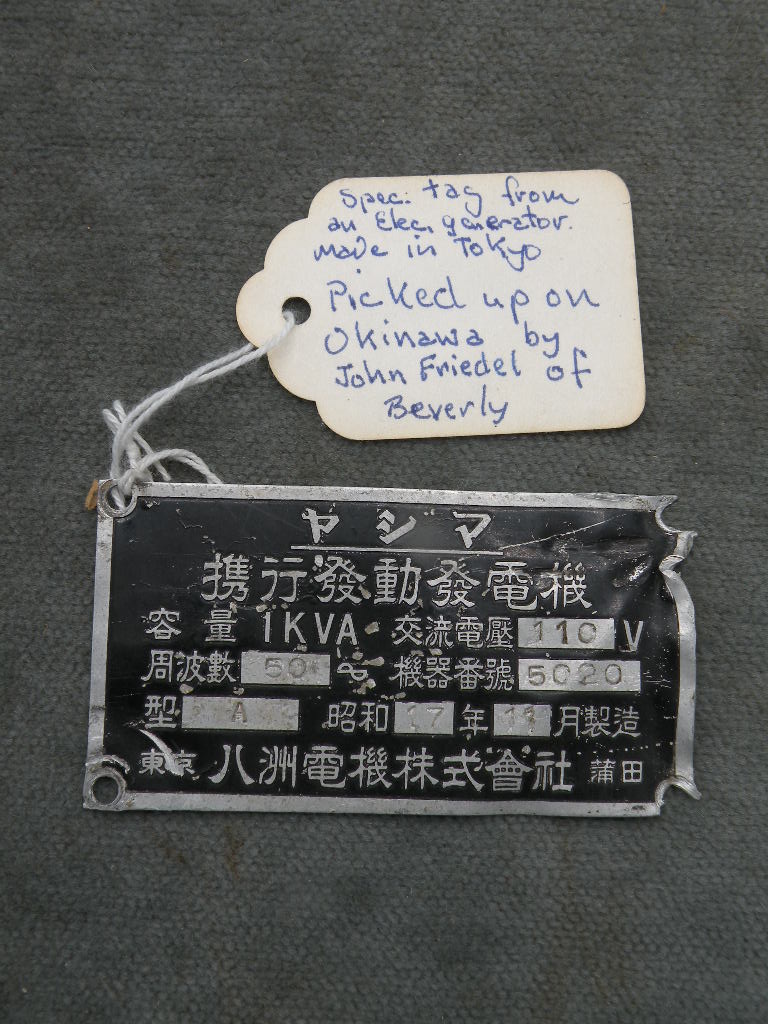 Spec. tag from
an Elec. generator.
made in Tokyo
Picked up on
Okinawa by
John Friedel of
Beverly
ヤシマ
携行發動發電機
容量 1KVA 交流電壓 110 V
周波數 50 機器番號 5020
型 A 昭和 17 年 11 月製造
東京 八洲電機株式會社 蒲田